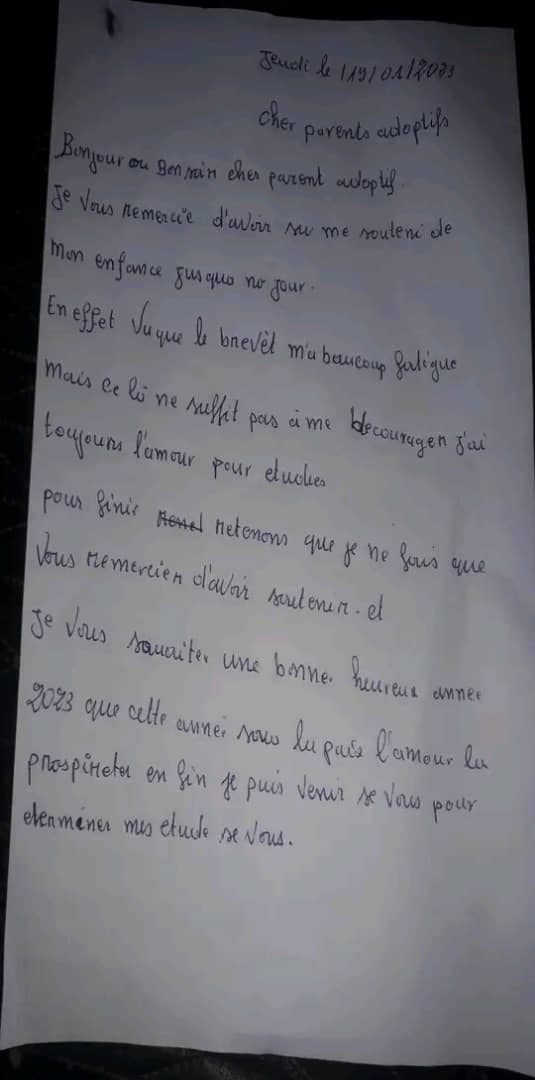 Jeudi le 19/01/2023
cher parents adoptifs
Bonjour ou Bonsoir cher parent adoptif.
Je Vous remercie d'avoir su me souteni de
mon enfance jusquo no jour.
En effet Vu que le brevêt m'a beaucoup fatigue
Mais ce là ne suffit pas à me decourager j'ai
toujours l'amour pour etudier
pour finir retenons que je ne fais que
Vous remercier d'avoir soutenir. et
Je Vous souaiter une bonner heureux année
2023 que cette année sous la paix l'amour la
prospireter en fin je puis Venir se Vous pour
eterminer mes etude se Vous.